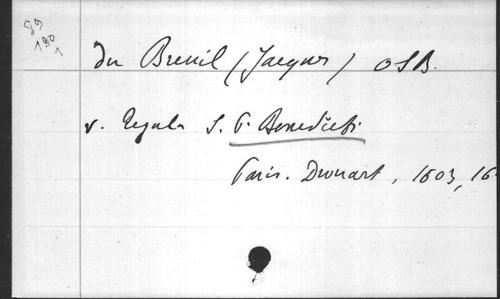 59
190
1
Du Breuil (Jacques) OSB.
v. Regula S. P. Benedicti
Paris. Drouart, 1603, 16